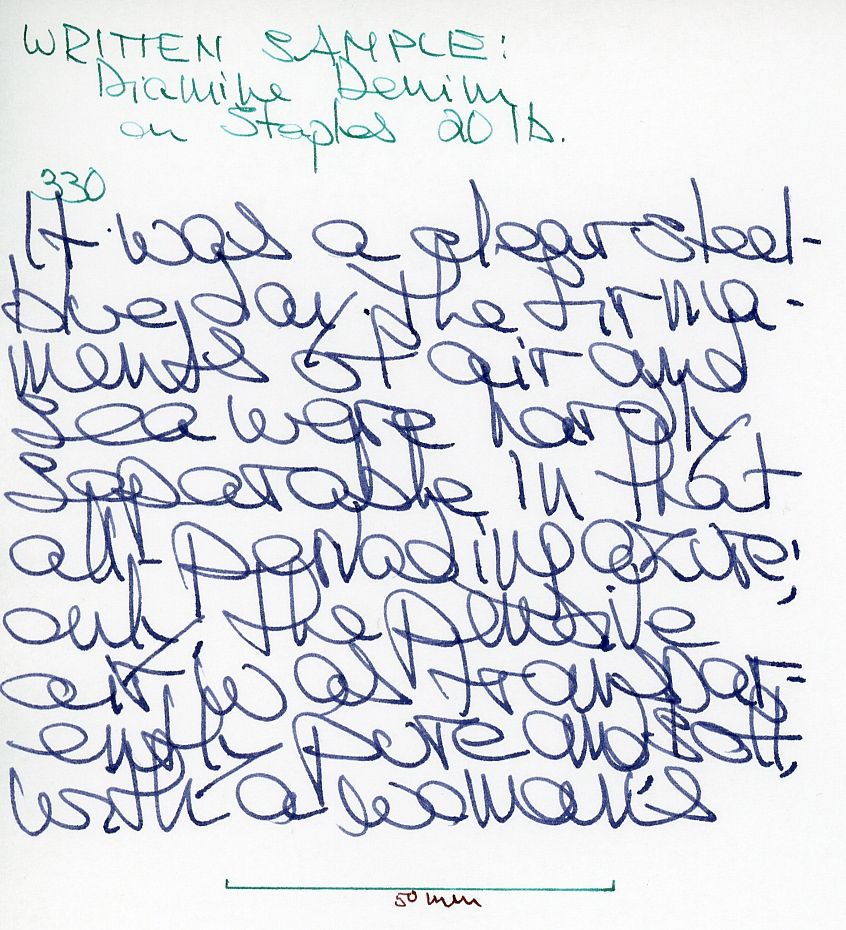 WRITTEN SAMPLE:
Diamine Denim
on Staples 20 lb.
330
It was a clear steel-
blue day. The firma-
ments of air and
sea were hardly
separable in that
all-pervading azure;
only, the pensive
air was transpar-
ently pure and soft,
with a woman's
50 mm